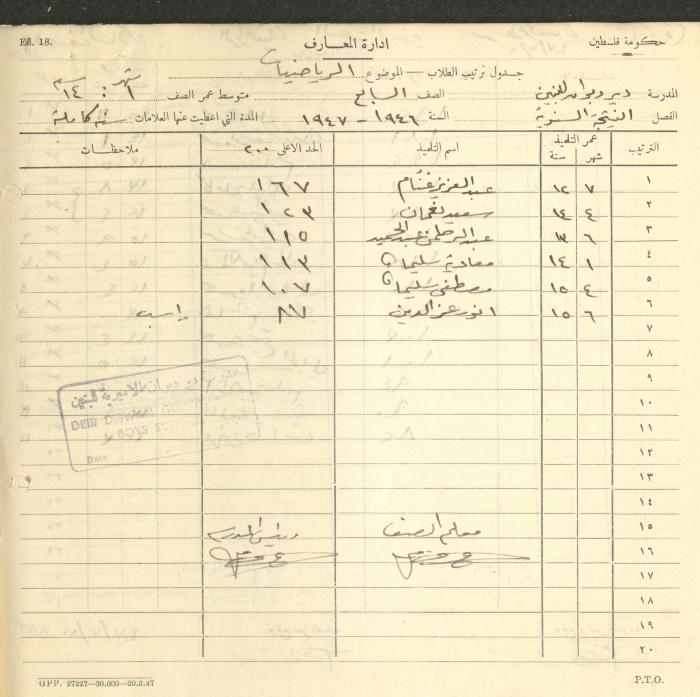 Ed. 18.
ادارة المعارف
حكومة فلسطين
جدول ترتيب الطلاب — الموضوع الرياضيات
المدرسة ديردبوان للبنين الصف السابع متوسط عمر الصف شهر ١ : سنة ١٤
الفصل النتيجة السنوية السنة ١٩٤٦ - ١٩٤٧ المدة التي اعطيت عنها العلامات سنة كاملة
الترتيب عمر التلميذ شهر سنة اسم التلميذ الحد الاعلى ٢٠٠ ملاحظات
١ ٧ ١٢ عبد العزيز غنام ١٦٧
٢ ٤ ١٤ سعيد نعمان ١٢٣
٣ ٦ ١٣ عبد الرحمن عبد الحميد ١١٥
٤ ١ ١٤ سليمان ١١٣
٥ ٤ ١٥ مصطفى سليمان ١٠٧
٦ ٦ ١٥ انور عز الدين ٨٧ راسب
٧
٨
٩
١٠
١١
١٢
١٣
١٤
١٥ معلم الصف رئيس المدرسة
١٦
١٧
١٨
١٩
٢٠
دير دبوان الاميرية للبنين
DEIR DIBWAN
BOYS
Date
GPP. 27227—30.000—20.5.47
P.T.O.